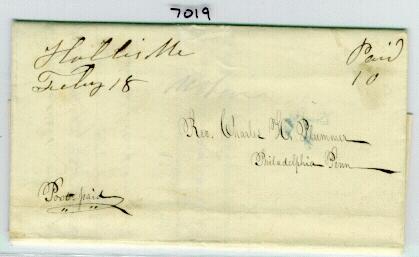 7019
Hollis Me
Feby 18
Paid
10
Rev. Charles H. Plummer
Philadelphia Penn
Post paid